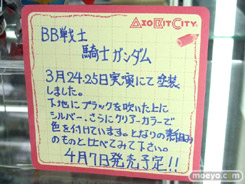 AZONET CITY
BB戦士
騎士ガンダム
3月24.25日実演にて塗装
しました。
下地にブラックを吹いた上に
シルバー、さらにクリアーカラーで
色を付けています。となりの素組み
のものと比べてみて下さい。
4月7日発売予定!!
moeyo.com